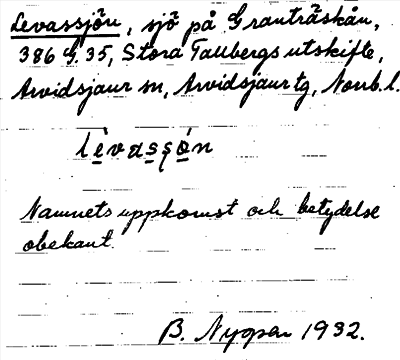 Levassjön, sjö på Granträskån,
386 G. 35, Stora Tallbergs utskifte,
Arvidsjaur sn, Arvidsjaur tg, Norrb. l.
lèvasʂọ́n
Namnets uppkomst och betydelse
obekant.
B. Nygren 1932.